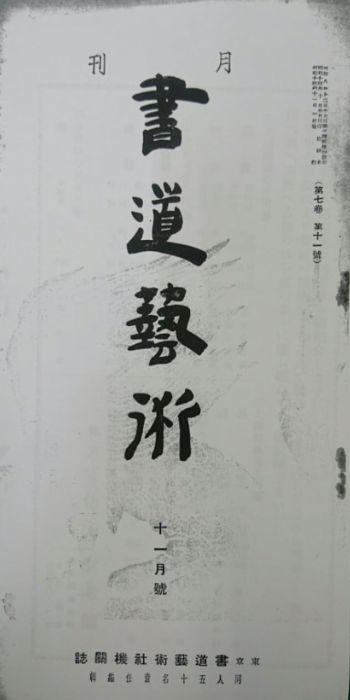 月刊
(第七卷 第十一號)
書道藝術
十一月號
東京 書道藝術社機關誌
同人五十名責任編輯